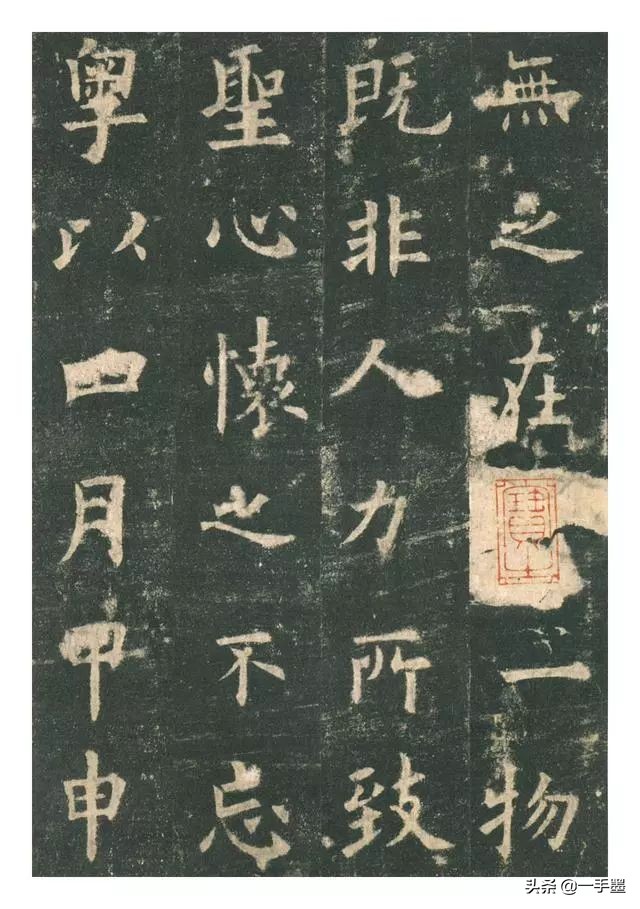 無之在一物
既非人力所致
聖心懷之不忘
粤以四月甲申
头条@一手墨